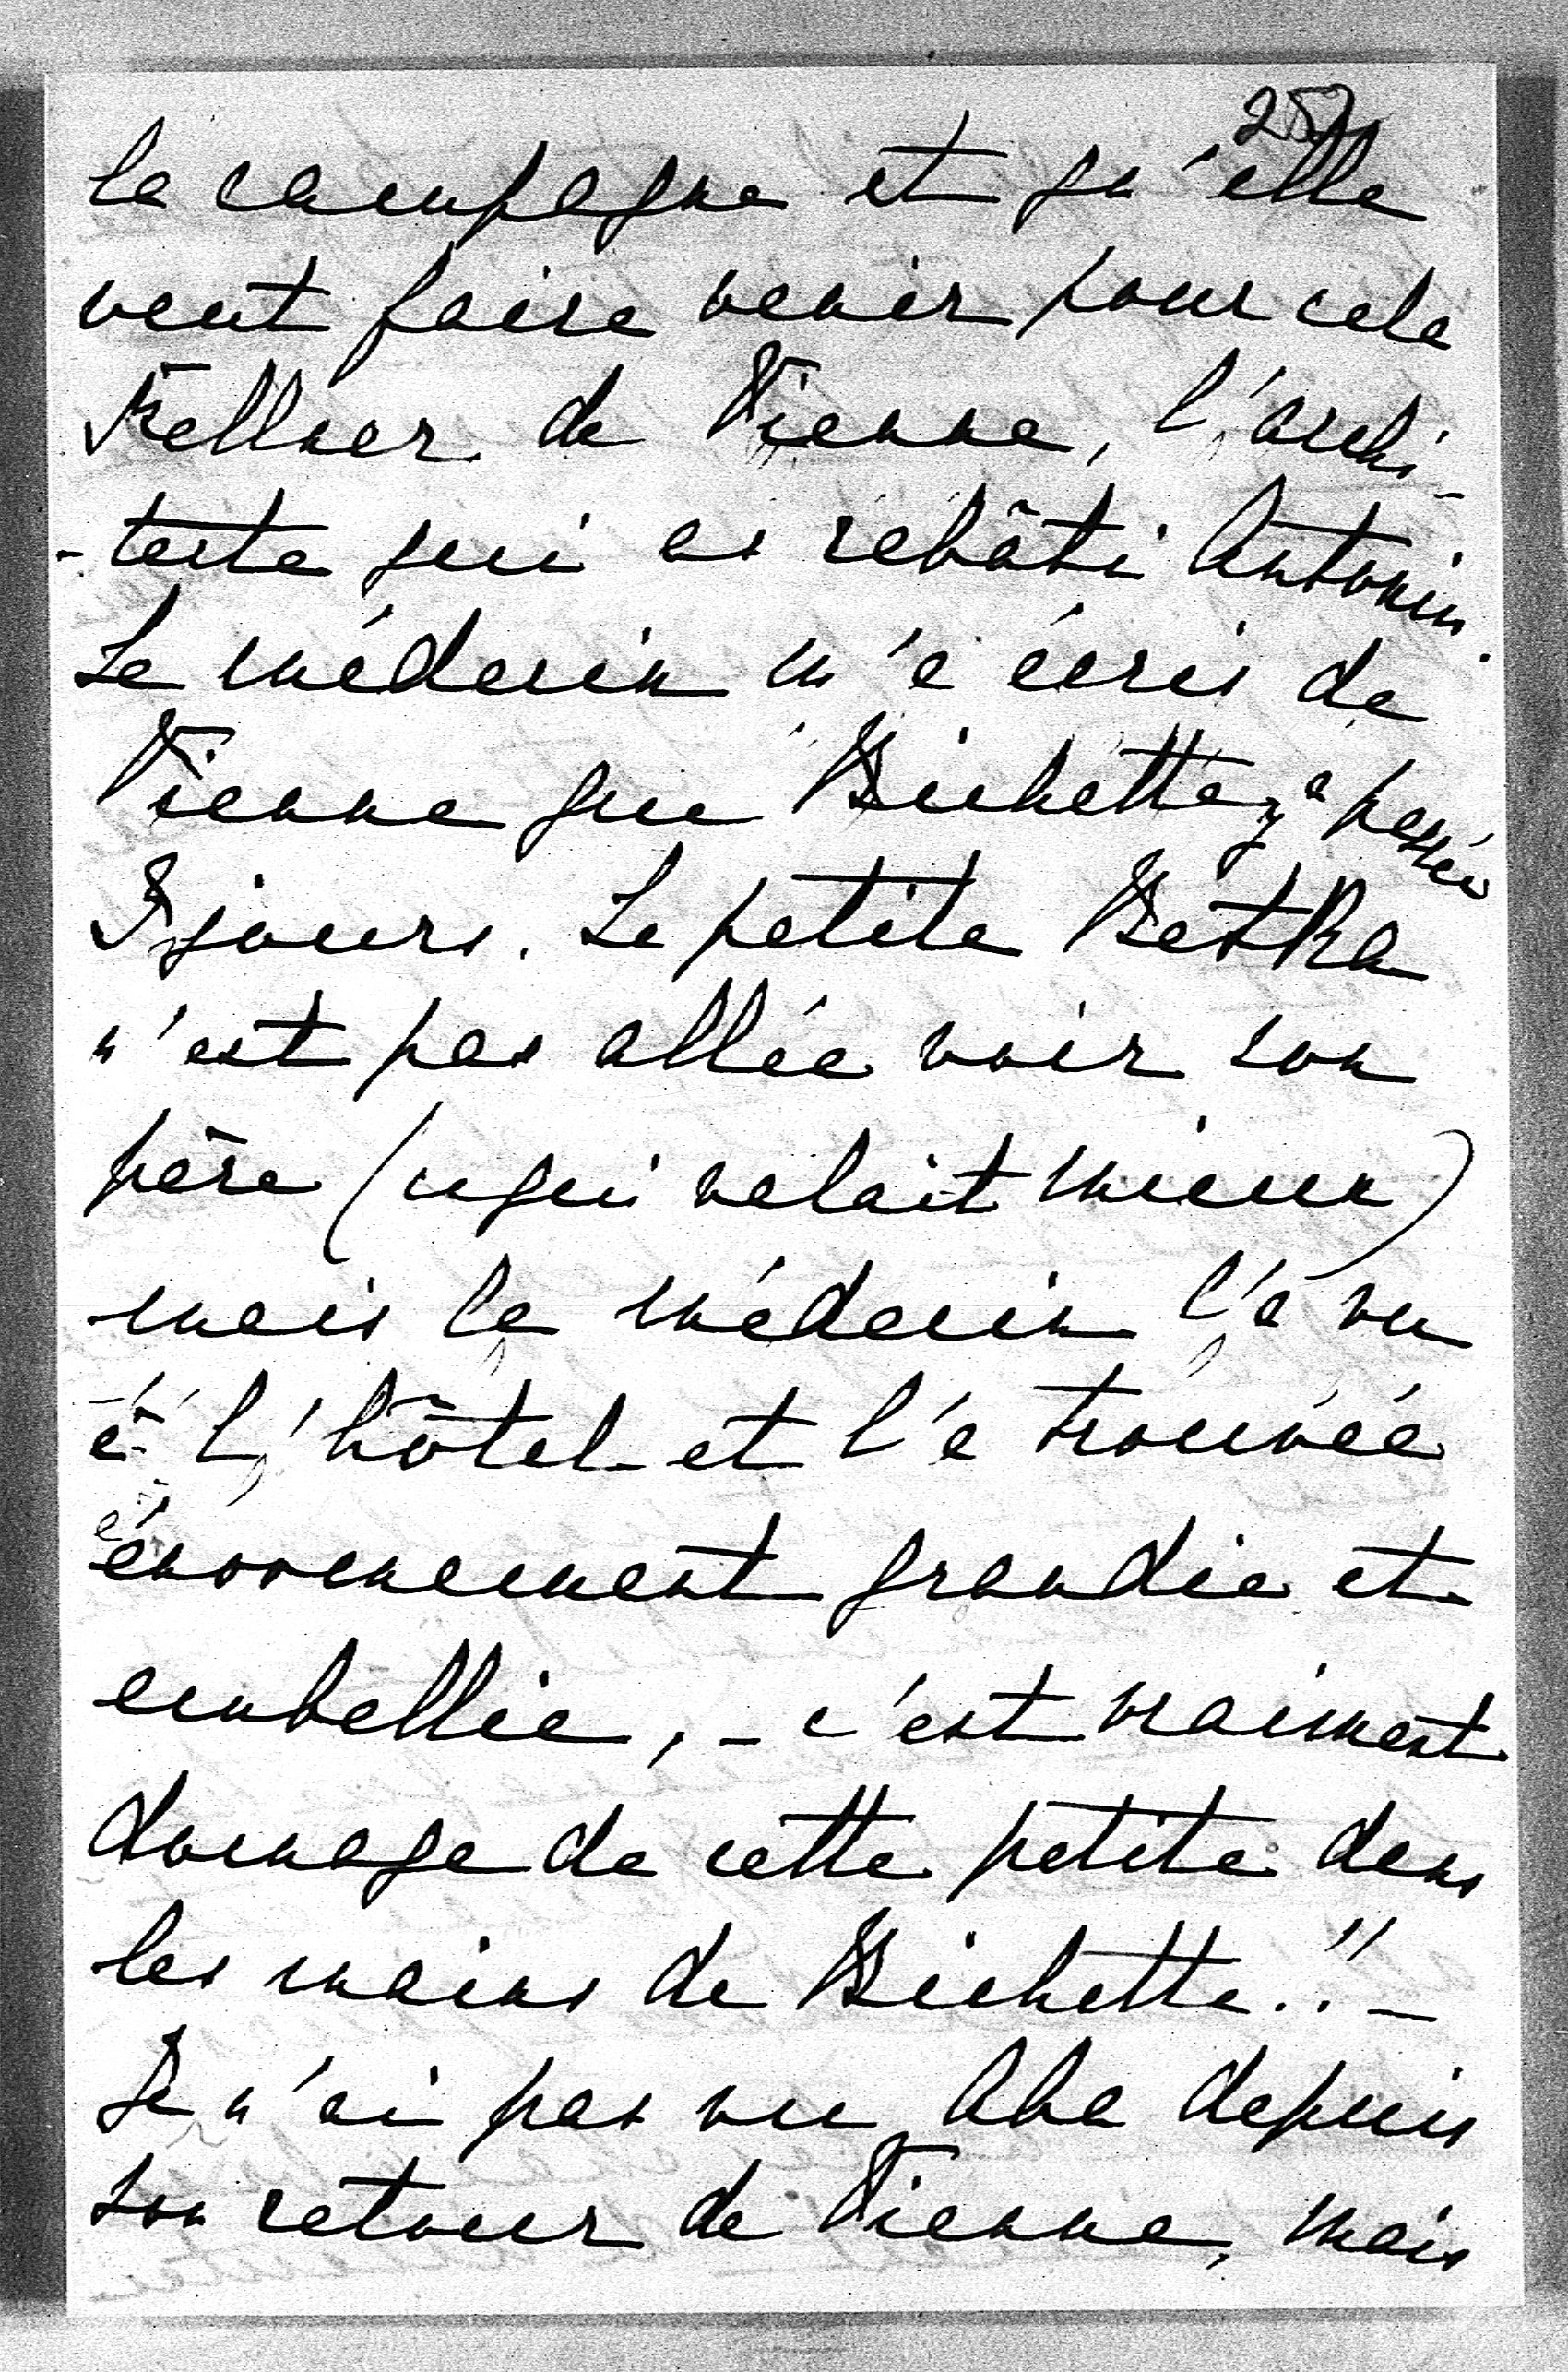 252
la campagne et qu'elle
veut faire venir pour cela
Fellner de Vienne, l'archi-
-tecte qui as rebâti Antonin.
Le médecin m'a écris de
Vienne que Bichette y a passée
8 jours. La petite Betka
n'est pas allée voir son
père (ce qui valait mieux)
mais le médecin l'a vu
à l'hôtel et l'a trouvée
énormement grandie et
embellie, - c'est vraiment
domage de cette petite dans
les mains de Bichette!! -
Je n'ai pas vu Aba depuis
son retour de Vienne, mais